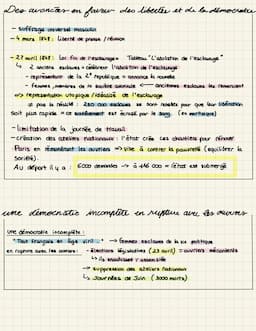 Des avancées en faveur des libertés et de la démocratie
- suffrage universel masculin
- 4 mars 1848 : liberté de presse / réunion
- 27 avril 1848 : loi fin de l'esclavage → Tableau "L'abolition de l'esclavage"
↳ 2 anciens esclaves = célébrer l'abolition de l'esclavage
- représentation de la 2e république = annonce la nouvelle
- femmes, membres de la société coloniale ← anciennes esclaves les remercient
=> représentation utopique / idéalisée de l'esclavage
et pas la réalité : 250 000 esclaves se sont révoltés pour que leur libération
soit plus rapide → ce soulèvement est écrasé par le sang. (en martinique)
- limitation de la journée de travail
- création des ateliers nationaux : l'état crée les chantiers pour rénover
Paris en rémunérant les ouvriers => vise à contrer la pauvreté (équilibrer la
société).
Au départ il y a : 6000 demandes → à 116 000 = l'état est submergé
une démocratie incomplète en rupture avec les ouvriers
une démocratie incomplète :
"Tout français en âge viril" → femmes exclues de la vie politique
en rupture avec les ouvriers : - élections législatives (23 avril) = ouvriers mécontents
↳ ils envahissent l'assemblée
→ suppression des ateliers nationaux
↳ Journées de Juin (3000 morts)